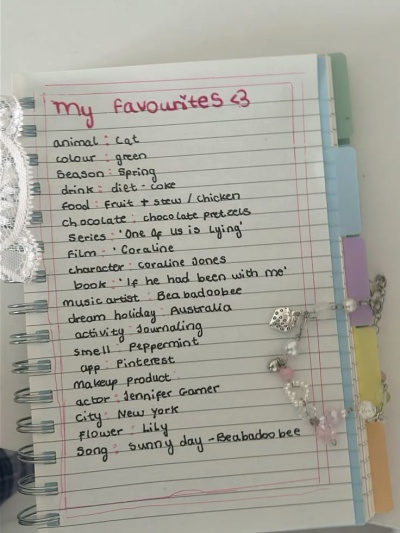 my favourites <3
animal : cat
colour : green
season : spring
drink : diet - coke
food : fruit + stew / chicken
chocolate : chocolate pretzels
series : 'One of us is lying'
film : 'Coraline
character : coraline Jones
book : 'if he had been with me'
music artist : Beabadoobee
dream holiday : Australia
activity : Journaling
smell : Peppermint
app : Pinterest
makeup product :
actor : Jennifer Garner
city : New york
flower : Lily
song : sunny day - Beabadoobee